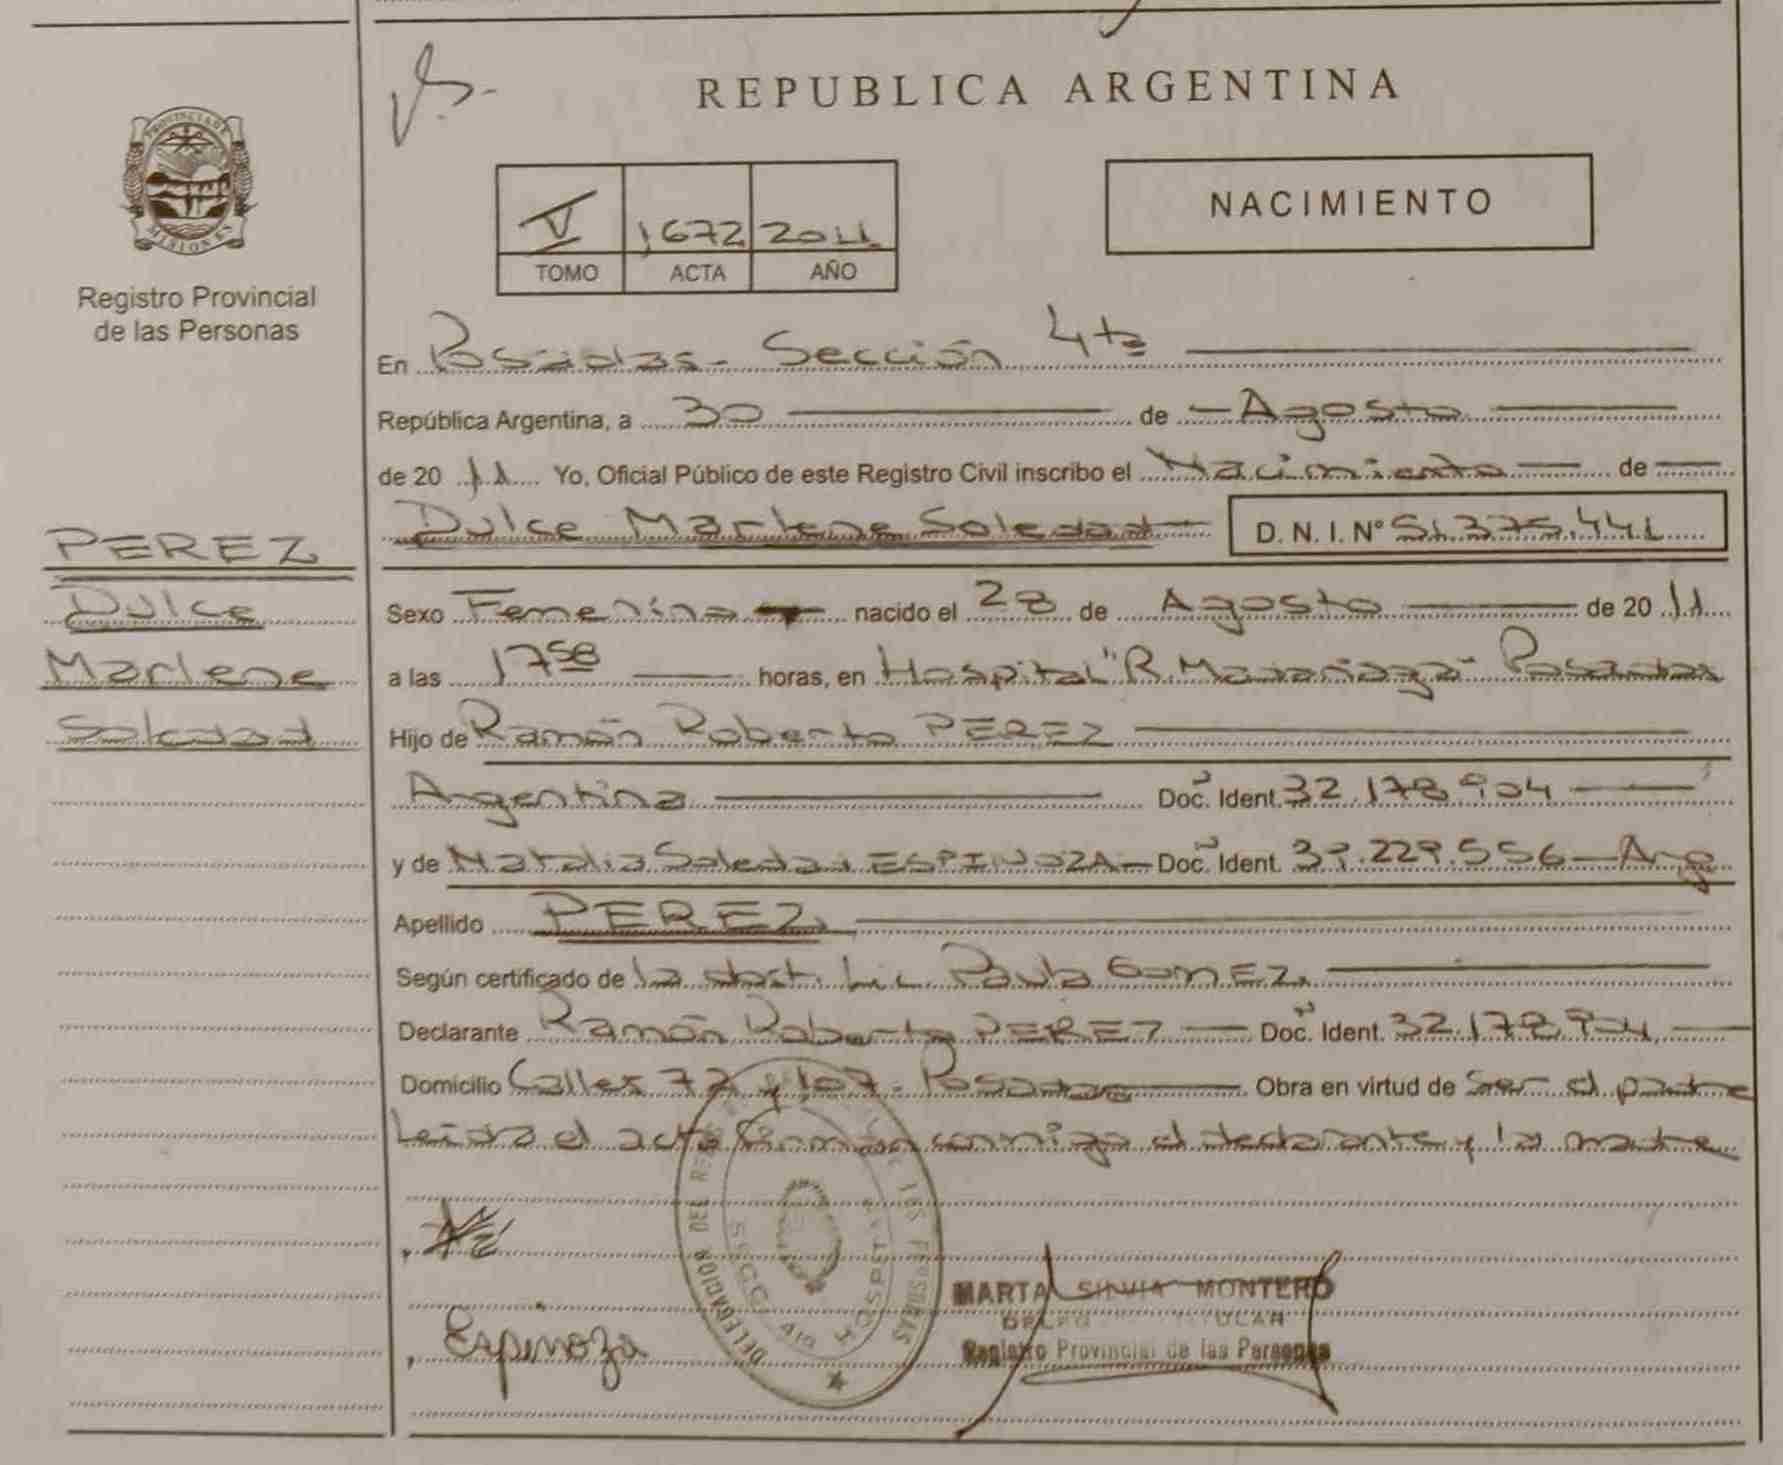 REPUBLICA ARGENTINA
PROVINCIA DE
MISIONES
Registro Provincial
de las Personas
V 1672 2011
TOMO ACTA AÑO
NACIMIENTO
En Posadas - Sección 4ta
República Argentina, a 30 de Agosto
de 20 11 Yo, Oficial Público de este Registro Civil inscribo el Nacimiento de
Dulce Marlene Soledad D. N. I. N° 51.375.441
PEREZ
Dulce
Marlene
Soledad
Sexo Femenino nacido el 28 de Agosto de 20 11
a las 17 58 horas, en Hospital "R. Madariaga" Posadas
Hijo de Ramón Roberto PEREZ
Argentina Doc. Ident. 32.178.904
y de Natalia Soledad ESPINOZA Doc. Ident. 229.556 - Arg
Apellido PEREZ
Según certificado de la obst. Lic. Paula GomEZ
Declarante Ramón Roberto PEREZ Doc. Ident. 32.178.904
Domicilio Calles 72 y 107 - Posadas Obra en virtud de Ser el padre
Leída el acta firman conmigo el declarante y la madre
DELEGACION DEL REGISTRO LAS PERSONAS
HOSPITAL
MARTA SILVIA MONTERO
Registro Provincial de las Personas
Espinoza